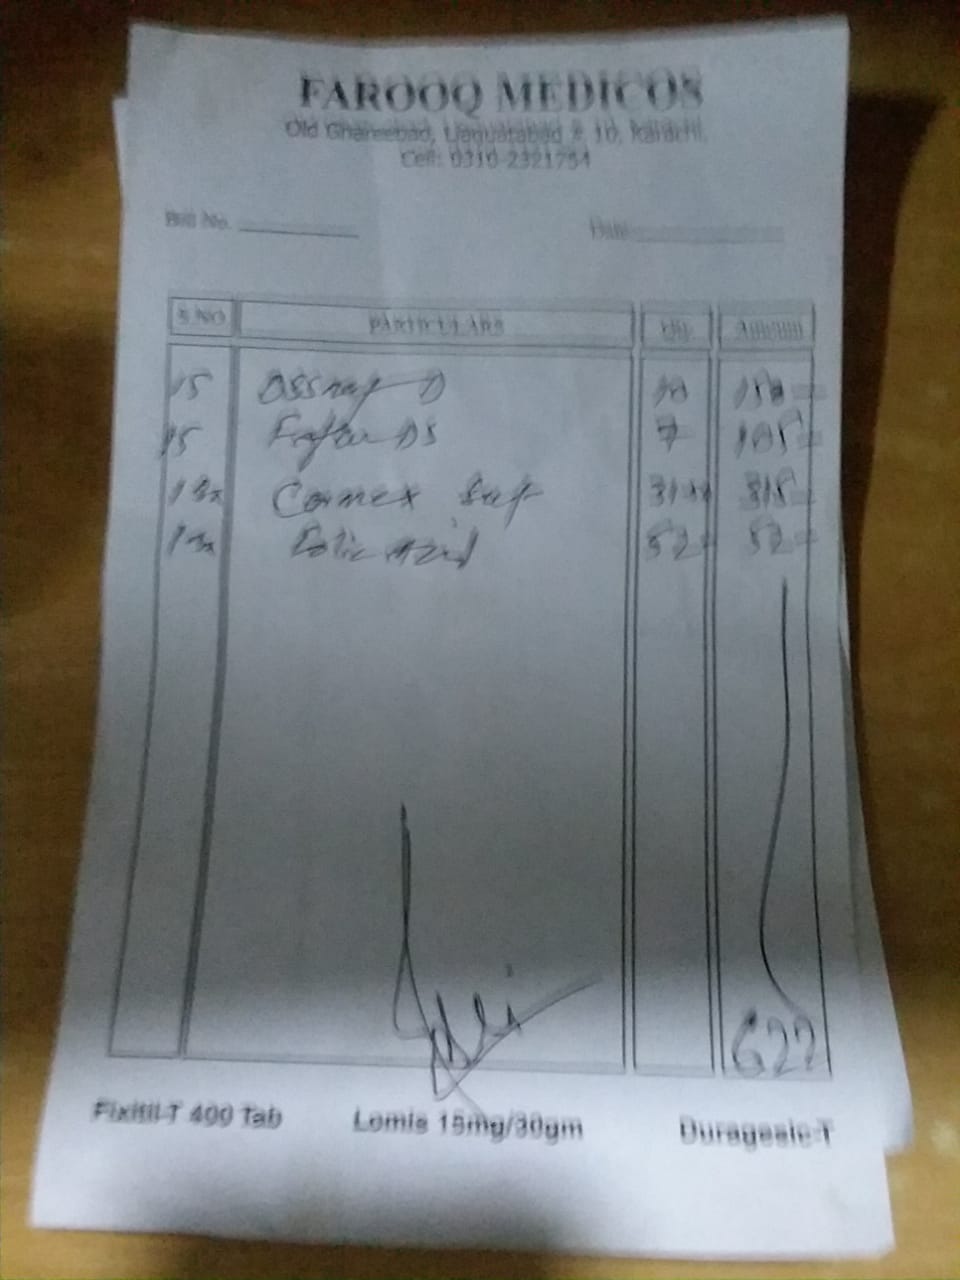 FAROOQ MEDICOS
Old Ghareebad, Liaquatabad # 10, Karachi.
Cell: 0310-2321754
Bill No. Date
S.NO PARTICULARS Qty. Amount
15 D 10 150=
15 DS 7 105=
Comex 315=
Folic Acid 52 52=
622
Fixitil-T 400 Tab Lomis 15mg/30gm Duragesic-T